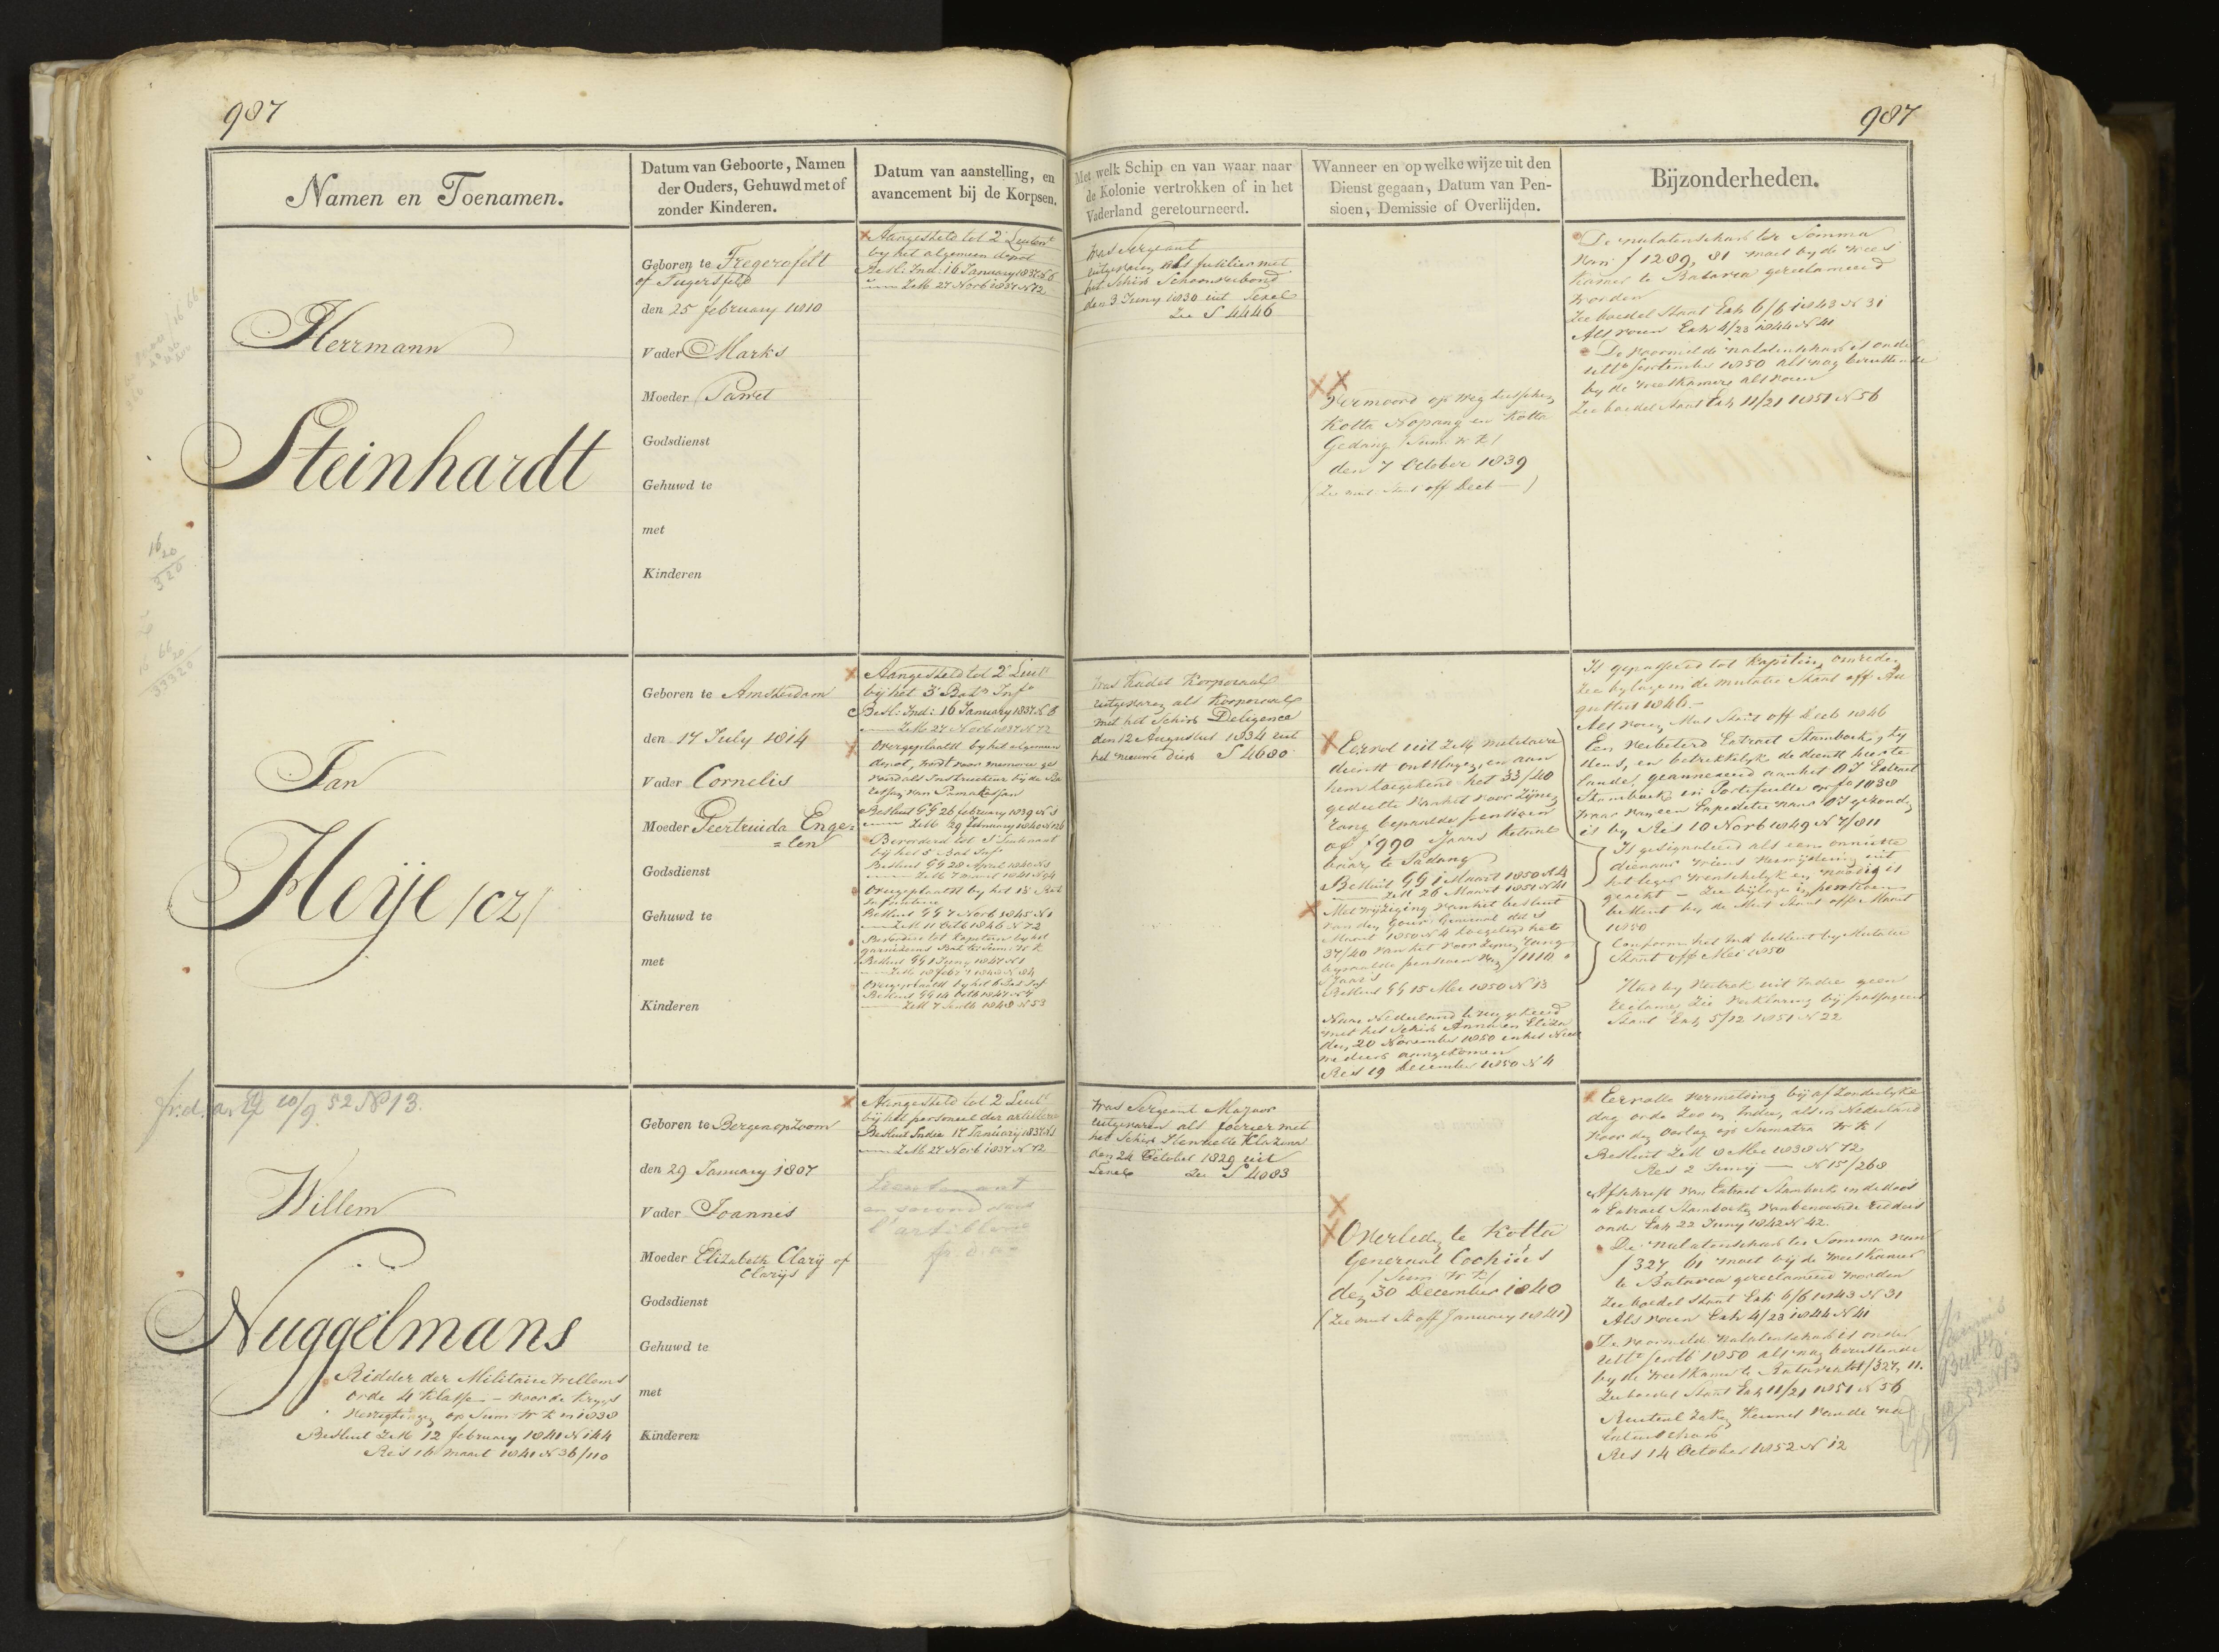 987
987
Namen en Toenamen.
Datum van Geboorte, Namen
der Ouders, Gehuwd met of
zonder Kinderen.
Datum van aanstelling, en
avancement bij de Korpsen.
Met welk Schip en van waar naar
de Kolonie vertrokken of in het
Vaderland geretourneerd.
Wanneer en op welke wijze uit den
Dienst gegaan, Datum van Pen-
sioen, Demissie of Overlijden.
Bijzonderheden.
Herrmann
Steinhardt
Geboren te Fregerofelt
of Fugersfeld
den 25 february 1810
Vader Marks
Moeder
Godsdienst
Gehuwd te
met
Kinderen
Aangesteld tot 2e Luitent
by het algemeen depot
Besl: Ind: 16 January 1837 N 6
ZM 27 Novb 1837 N 72
was Sergeant
uitgevaren als fuselier met
het Schip Schoonverbond
den 3 Juny 1830 uit Texel
Zie S 4446
Vermoord op weg tusschen
Kotta Nopang en Kotta
Gedang /Sum: W K/
den 7 October 1839
(Zie mut. Staat off Decb —)
De nalatenschap ter Somma
van f 1289, 81 moet by de wees
kamer te Batavia gereclameerd
worden
Zie boedel Staat Exh 6/6 1843 N 31
Als voren Exh 4/23 1844 N 41
De voormelde nalatenschap is onder
ult° September 1850 als nog berustende
by de weeskamer als voren
Zie boedel Staat Exh 11/21 1851 N 56
Jan
Heije /CZ/
Geboren te Amsterdam
den 17 July 1814
Vader Cornelis
Moeder Geertruida Enge=
=len
Godsdienst
Gehuwd te
met
Kinderen
Aangesteld tot 2e Luit
bij het 3e Batn Infe
Besl: Ind: 16 January 1837 N 6
ZM 27 Novb 1837 N 72
Overgeplaatst by het algemeen
depot, wordt voor memorie ge
voerd als Instructeur bij de Ba
van Pamakassan
Besluit GG 26 february 1839 N 3
ZM 29 february 1840 N 126
Bevorderd tot 1e Luitenant
bij het 5e Bat Inf
Besluit GG 28 April 1840 N 3
ZM 7 maart 1841 N 94
Overgeplaatst by het 13e Bat
Infanterie
Besluit GG 7 Novb 1845 N 1
ZM 11 Octb 1846 N 72
Bevorderd tot Kapitein by het
garnizoens Bat te Sum: W K
Besluit GG 1 Juny 1847 N 1
ZM 18 febr 1848 N 84
Overgeplaatst by het 6 Bat Inf
Besluit GG 14 Octb 1847 N 7
ZM 7 Septb 1848 N 53
was Kadet Korporaal
uitgevaren als Korporaal
met het Schip Deligence
den 12 Augustus 1834 uit
het nieuwe diep S 4680
Eervol uit ZMs militaire
dienst ontslagen, en aan
hem toegekend het 33/40
gedeelte van het voor zijnen
rang bepaalde pensioen
of f990 's Jaars betaal
baar te Padang
Besluit GG 1 Maart 1850 N 4
ZM 26 Maart 1851 N 41
Met wijziging van het besluit
van den Gouv: Generaal dd 1
Maart 1850 N 4 toegelegd het
37/40 van het voor zynen rang
bepaalde pensioen van f 1110
's Jaars
Besluit GG 15 Mei 1850 N 13
Naar Nederland terug gekeerd
met het Schip Anna en Eliza
den 20 November 1850 in het Nieu
we diep aangekomen
Res 19 December 1850 N 4
Is gepasseerd tot Kapitein, omreden
Zie bylage in de mutatie Staat off Au
gustus 1846.—
Als voren, Mut Staat off Decb 1846
Een verbeterd Extract Stamboek, zy
nen, en betrekkelyk de dienst hier te
lande, geannexeerd aan het OJ Extract
Stamboek in Portefeuille op fo 1038
waar van een Expeditie naar OJ gezonden
is by Res 10 Novb 1849 N 7/811
Is gesignaleerd als een onnutte
dienaar wiens verwijdering uit
het leger wenschelyk en noodig is
geacht — Zie bijlage in pensioen
besluit by de Mut Staat off Maart
1850
Conform het Ind besluit by Mutatie
Staat off Mei 1850
Had by vertrek uit Indie geen
reclames, Zie verklaring bij passagiers
Staat Exh 5/12 1851 N 22
fr:d. 10/9. 52 No 13.
Willem
Nuggelmans
Ridder der Militaire Willems
orde 4 Klasse — voor de krygs
verrigtingen op Sum: W K in 1838
Besluit ZM 12 february 1841 N 144
Res 16 maart 1841 N 36/110
Geboren te Bergenopzoom
den 29 January 1807
Vader Joannis
Moeder Elizabeth Clarij of
Clarijs
Godsdienst
Gehuwd te
met
Kinderen
Aangesteld tot 2 Luitt
bij het personeel der artillerie
Besluit Indie 17 January 1837 N 1
ZM 27 Novb 1837 N 72
Lieutenant
en second dans
l'artillerie
was Sergeant Majoor
uitgevaren als fourier met
het Schip Henriette Klazina
den 24 October 1829 uit
Texel Zie S 4083
Overleden te Kotta
Generaal Cochius
/Sum W K/
den 30 December 1840
(Zie mut St off January 1841)
Eervolle vermelding bij afzonderlyke
dag orde zoo in Indie, als in Nederland
voor den oorlog op Sumatra W K /
Besluit ZM 8 Mei 1838 N 72
Res 2 Junij — N 15/268
Afschrift van Extract Stamboek in de doos
"Extract Stamboeken van benoemde ridders
onder Exh 22 Juny 1842 N 42.
De nalatenschap ter Somma van
f 327, 61 moet bij de weeskamer
te Batavia gereclameerd worden
Zie boedel Staat Exh 6/6 1843 N 31
Als voren Exh 4/23 1844 N 41
De voormelde nalatenschap is onder
ult° Septb 1850 als nog berustende
by de weeskamer te Batavia tot f 327, 11.
Zie boedel Staat Exh 11/21 1851 N 56
Res 14 October 1852 N 12
16
20
320
66
20
3320